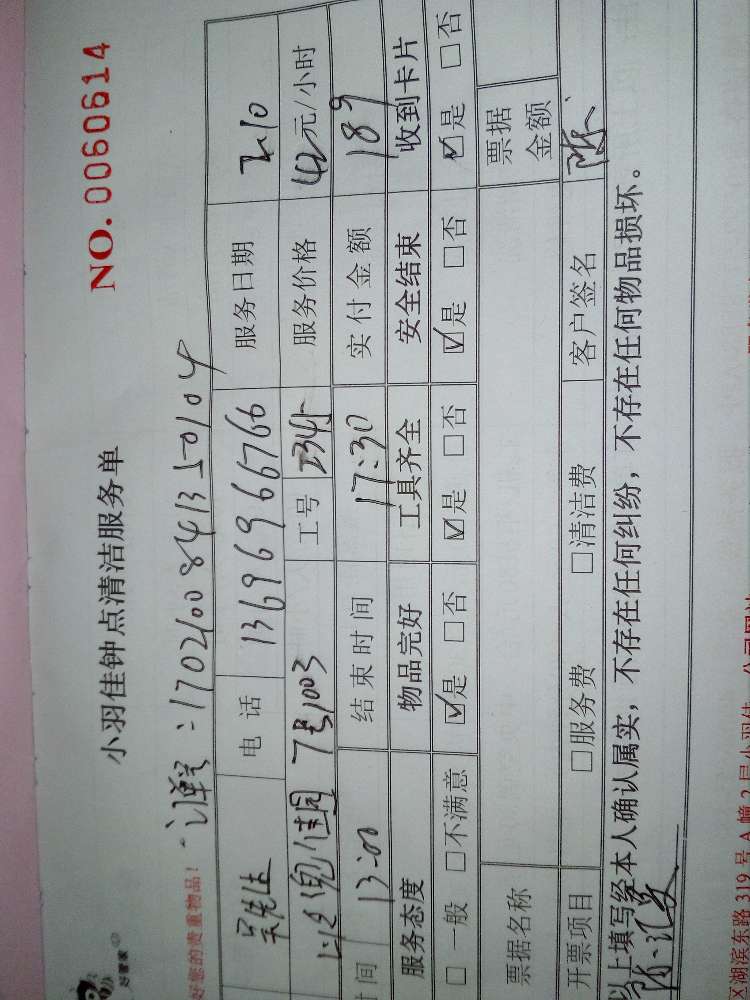 好管家
小羽佳钟点清洁服务单
NO. 0060614
好您的贵重物品！
订单号：1702100841350104
吴先生 电话 13696966766 服务日期 2.10
7号1003 工号 2345 服务价格 42元/小时
时间 13:00 结束时间 17:30 实付金额 189
服务态度 物品完好 工具齐全 安全结束 收到卡片
□一般 □不满意 ☑是 □否 ☑是 □否 ☑是 □否 ☑是 □否
票据名称 票据金额
开票项目 □服务费 □清洁费 客户签名
以上填写经本人确认属实，不存在任何纠纷，不存在任何物品损坏。
区湖滨东路 319 号 A 幢 2 层小羽佳